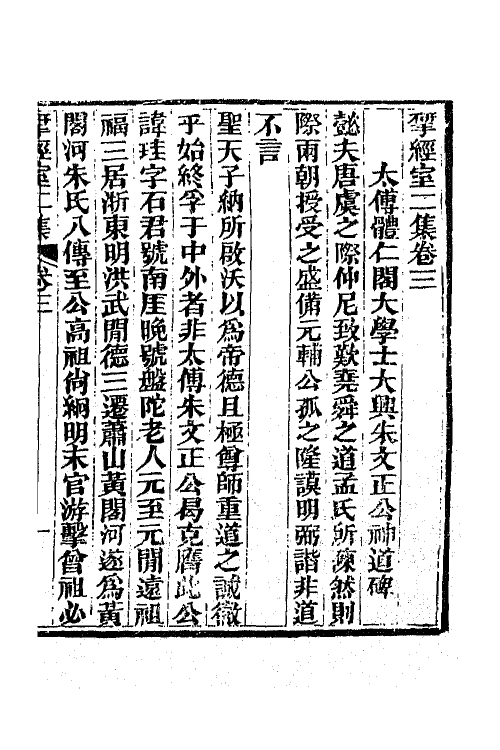 揅經室二集卷三
太傅體仁閣大學士大興朱文正公神道碑
懿夫唐虞之際仲尼致歎堯舜之道孟氏所陳然則
際兩朝授受之盛備元輔公孤之隆謨明弼諧非道
不言
聖天子納所啟沃以爲帝德且極尊師重道之誠徽
乎始終孚于中外者非太傅朱文正公曷克膺此公
諱珪字石君號南厓晚號盤陀老人元至元閒遠祖
福三居浙東明洪武閒德三遷蕭山黃閣河遂爲黃
閣河朱氏八傳至公高祖尚絅明末官游擊曾祖必
揅經室二集 卷三 一